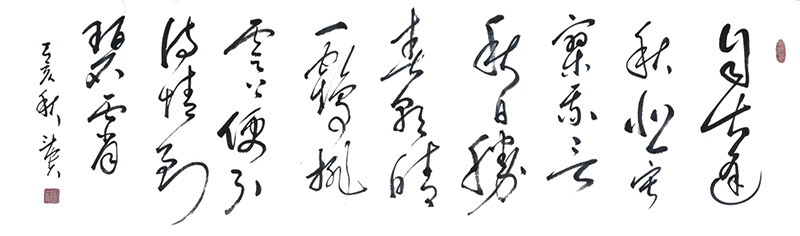 自古逢
秋悲寂
寥我言
秋日勝
春朝晴
一鶴排
雲上便引
詩情到
碧霄
亥秋